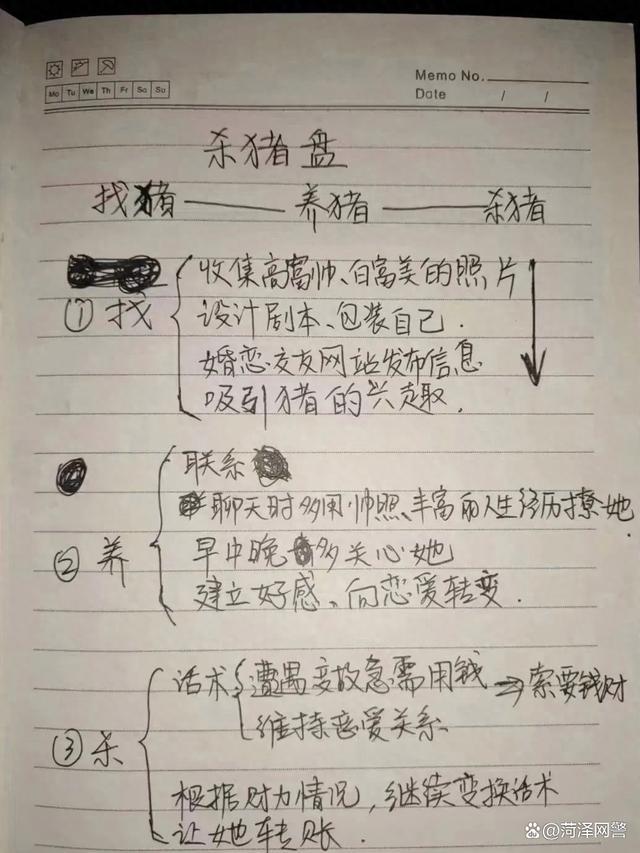 Memo No.
Mo Tu We Th Fr Sa Su
Date / /
杀猪盘
找猪——养猪——杀猪
①找
收集高富帅、白富美的照片
设计剧本、包装自己.
婚恋交友网站发布信息
吸引猪的兴趣.
②养
联系
聊天时多用帅照、丰富的人生经历撩她
早中晚多关心她
建立好感、向恋爱转变.
③杀
话术
遭遇变故急需用钱→索要钱财
维持恋爱关系
根据财力情况,继续变换话术
让她转账.
@菏泽网警